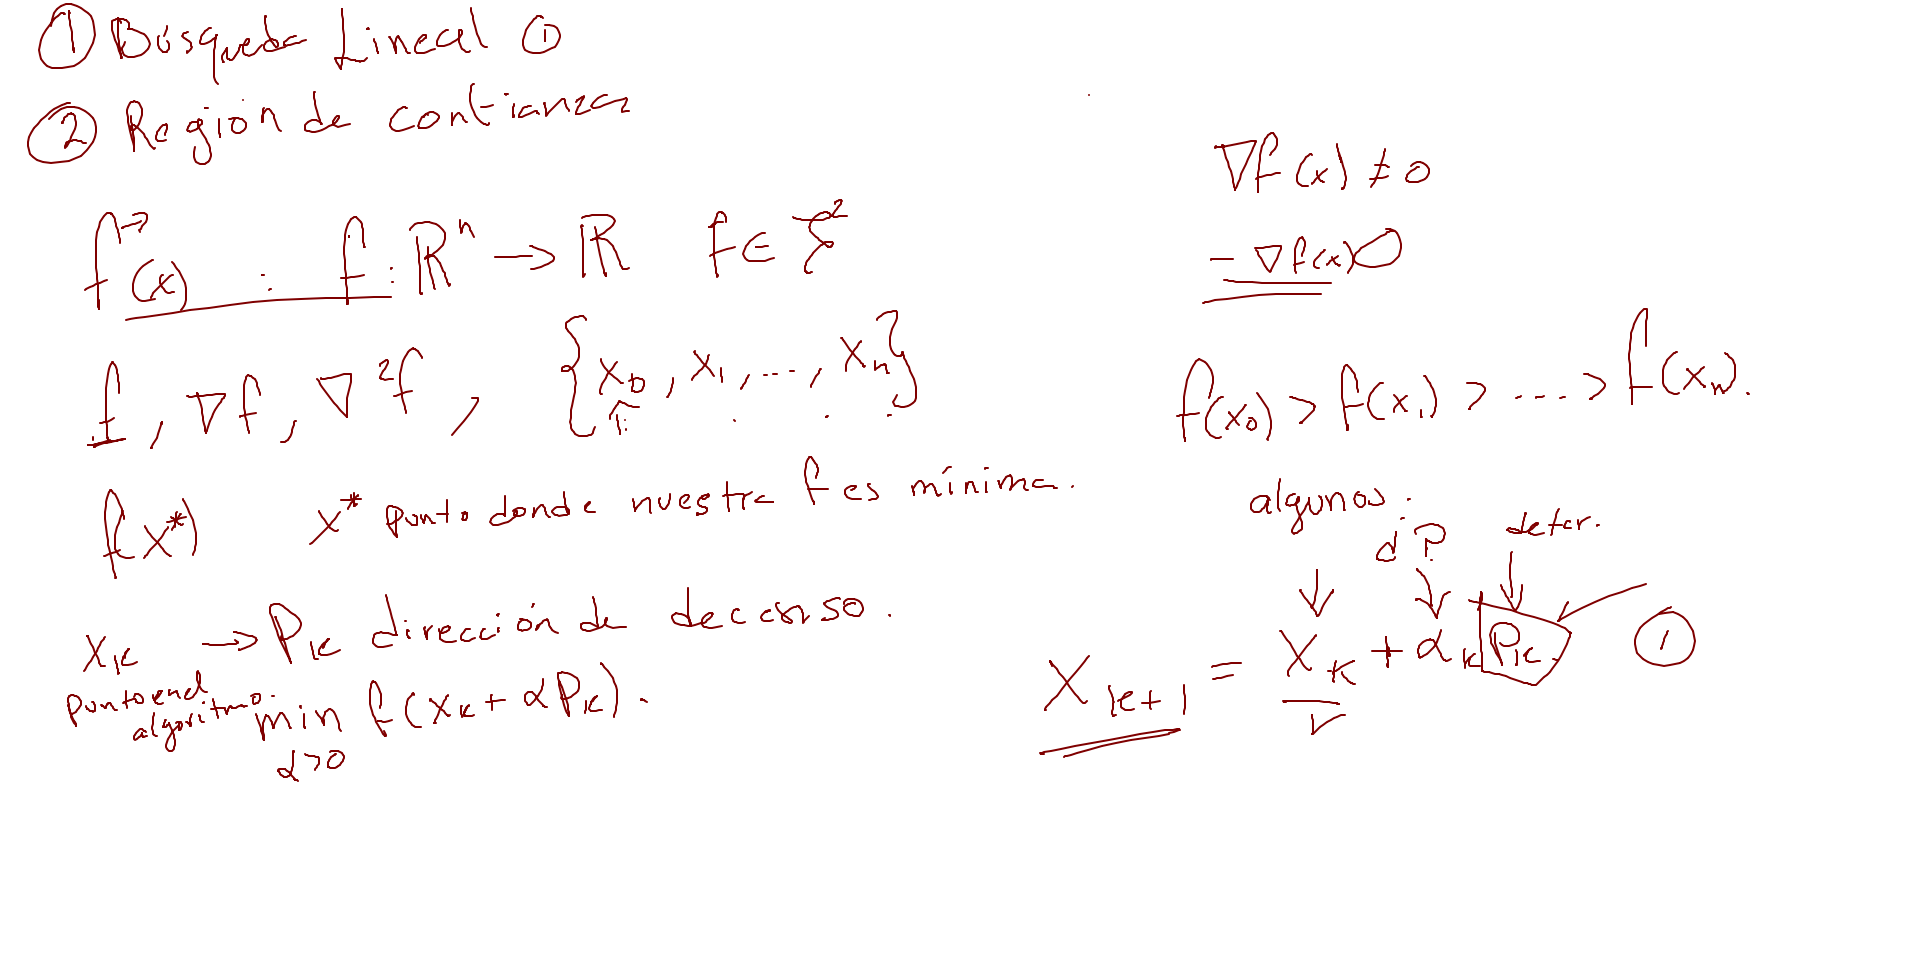 ① Búsqueda Lineal ①
② Región de confianza
f(x⃗) : f: ℝⁿ → ℝ f ∈ ζ²
f, ∇f, ∇²f, {x₀, x₁, ..., xₙ}
f(x*) x* punto donde nuestra f es mínima.
xₖ → Pₖ dirección de decenso.
punto en el
algoritmo.
min f(xₖ + αPₖ).
α>0
∇f(x) ≠ 0
-∇f(x)
f(x₀) > f(x₁) > ... > f(xₙ).
algunos.
¿? deter.
xₖ₊₁ = xₖ + αₖ Pₖ ①